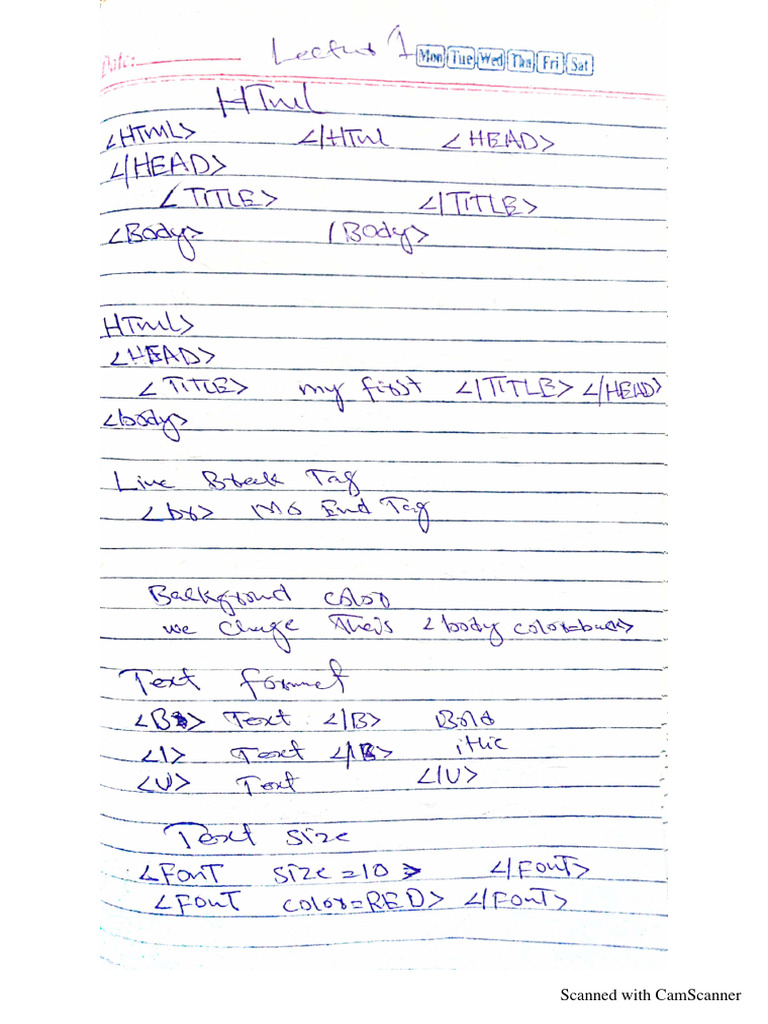 Lecture 1 Mon Tue Wed Thu Fri Sat
Date:
HTml
<HTmL> </HTml <HEAD>
</HEAD>
<TITLE> </TITLE>
<Body> /Body>
HTml>
<HEAD>
<TITLE> my first </TITLE> </HEAD>
<body>
Line Break Tag
<br> No End Tag
Background color
we change this <body color=
Text Format
<B> Text </B> Bold
<I> Text
<U> Text </U>
Text Size
<FONT SIZE=10 > </FONT>
<FONT color=RED> </FONT>
Scanned with CamScanner